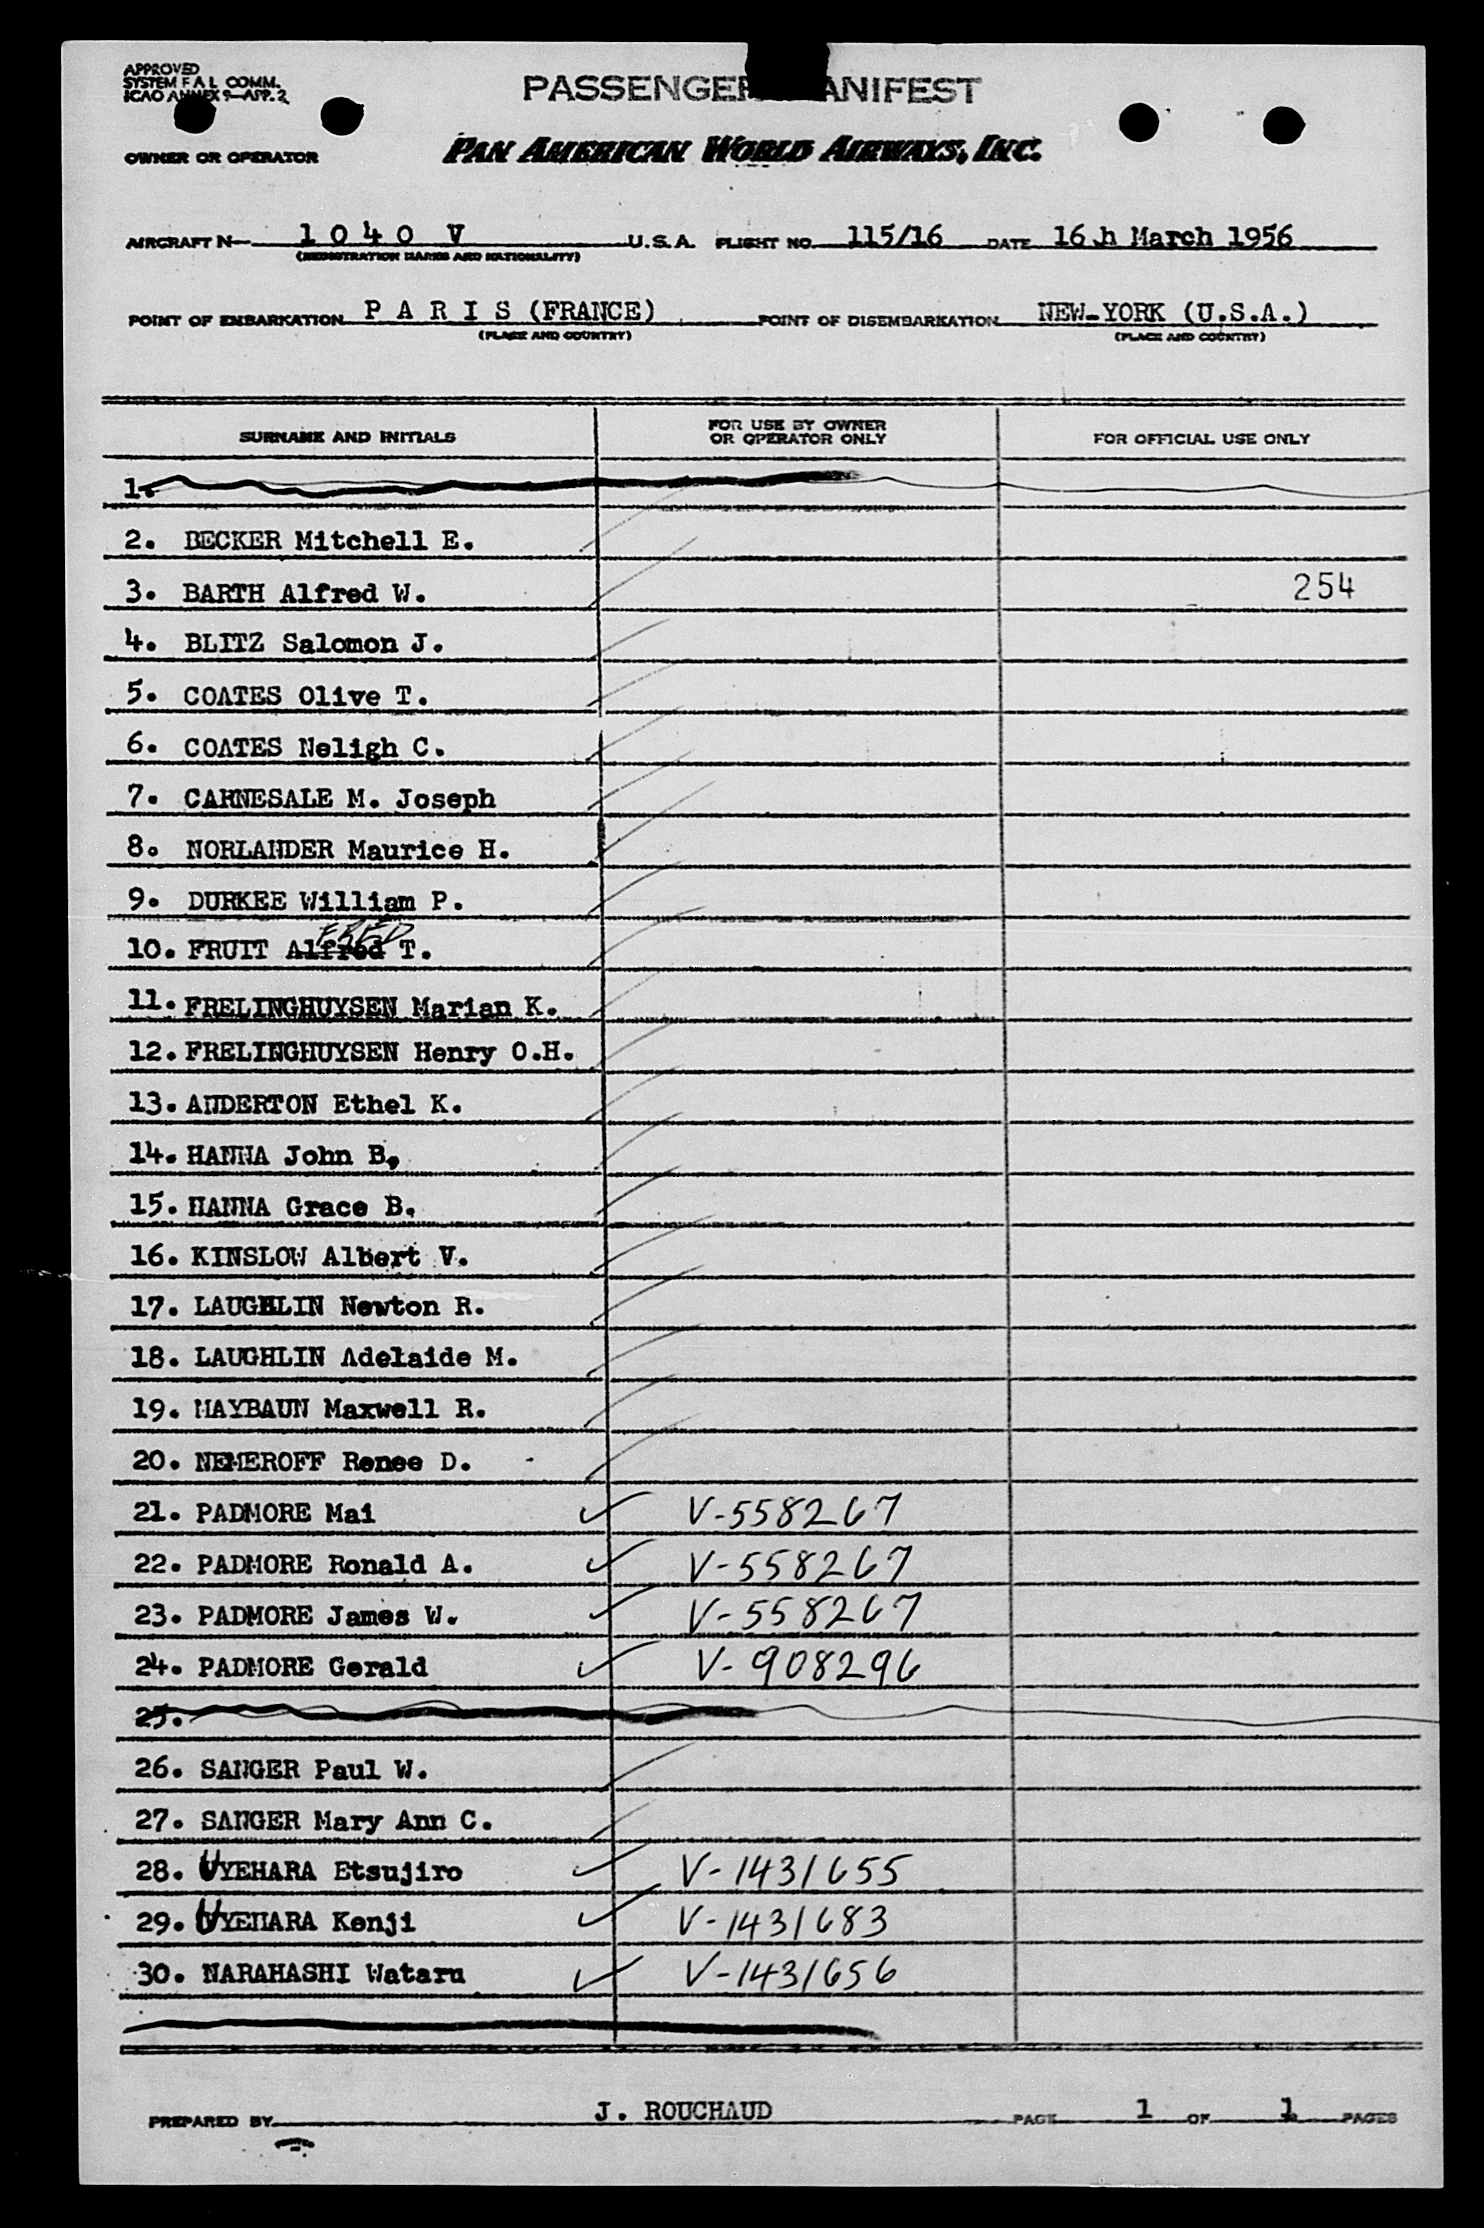 APPROVED
SYSTEM F A L COMM.
ICAO ANNEX 9—APP. 2
PASSENGER MANIFEST
OWNER OR OPERATOR PAN AMERICAN WORLD AIRWAYS, INC.
AIRCRAFT N— 1 0 4 0 V U.S.A. FLIGHT NO. 115/16 DATE 16.h March 1956
(REGISTRATION MARKS AND NATIONALITY)
POINT OF EMBARKATION P A R I S (FRANCE) POINT OF DISEMBARKATION NEW-YORK (U.S.A.)
(PLACE AND COUNTRY) (PLACE AND COUNTRY)
SURNAME AND INITIALS FOR USE BY OWNER OR OPERATOR ONLY FOR OFFICIAL USE ONLY
1.
2. BECKER Mitchell E.
3. BARTH Alfred W. 254
4. BLITZ Salomon J.
5. COATES Olive T.
6. COATES Neligh C.
7. CARNESALE M. Joseph
8. NORLANDER Maurice H.
9. DURKEE William P.
FRED
10. FRUIT Alfred T.
11. FRELINGHUYSEN Marian K.
12. FRELINGHUYSEN Henry O.H.
13. ANDERTON Ethel K.
14. HANNA John B.
15. HANNA Grace B.
16. KINSLOW Albert V.
17. LAUGHLIN Newton R.
18. LAUGHLIN Adelaide M.
19. MAYBAUN Maxwell R.
20. NEMEROFF Renee D.
21. PADMORE Mai V-558267
22. PADMORE Ronald A. V-558267
23. PADMORE James W. V-558267
24. PADMORE Gerald V-908296
25.
26. SANGER Paul W.
27. SANGER Mary Ann C.
28. UYEHARA Etsujiro V-1431655
29. UYEHARA Kenji V-1431683
30. NARAHASHI Wataru V-1431656
PREPARED BY J. ROUCHAUD PAGE 1 OF 1 PAGES